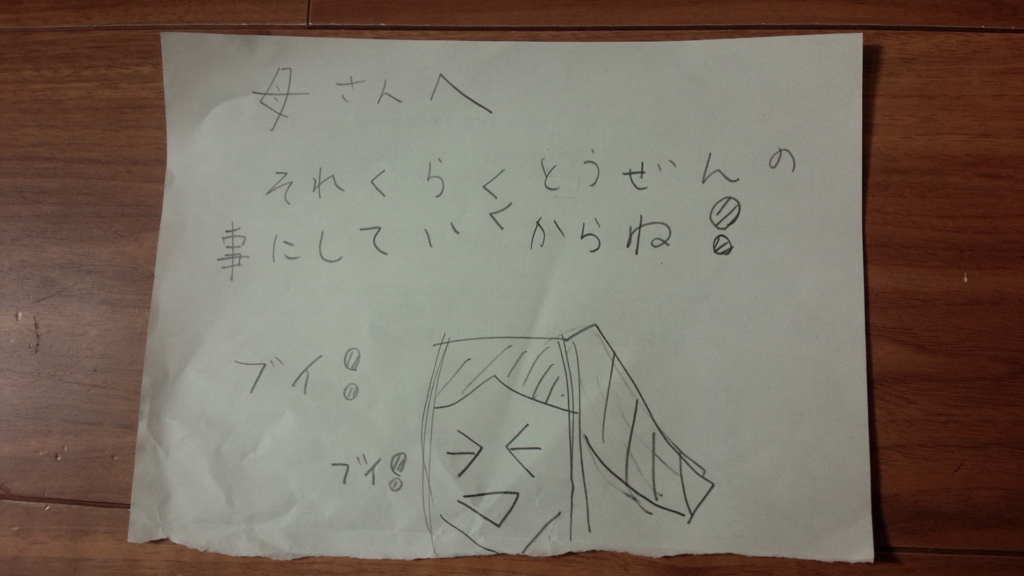 母さんへ
それくらくとうぜんの
事にしていくからね!
ブイ!
ブイ!